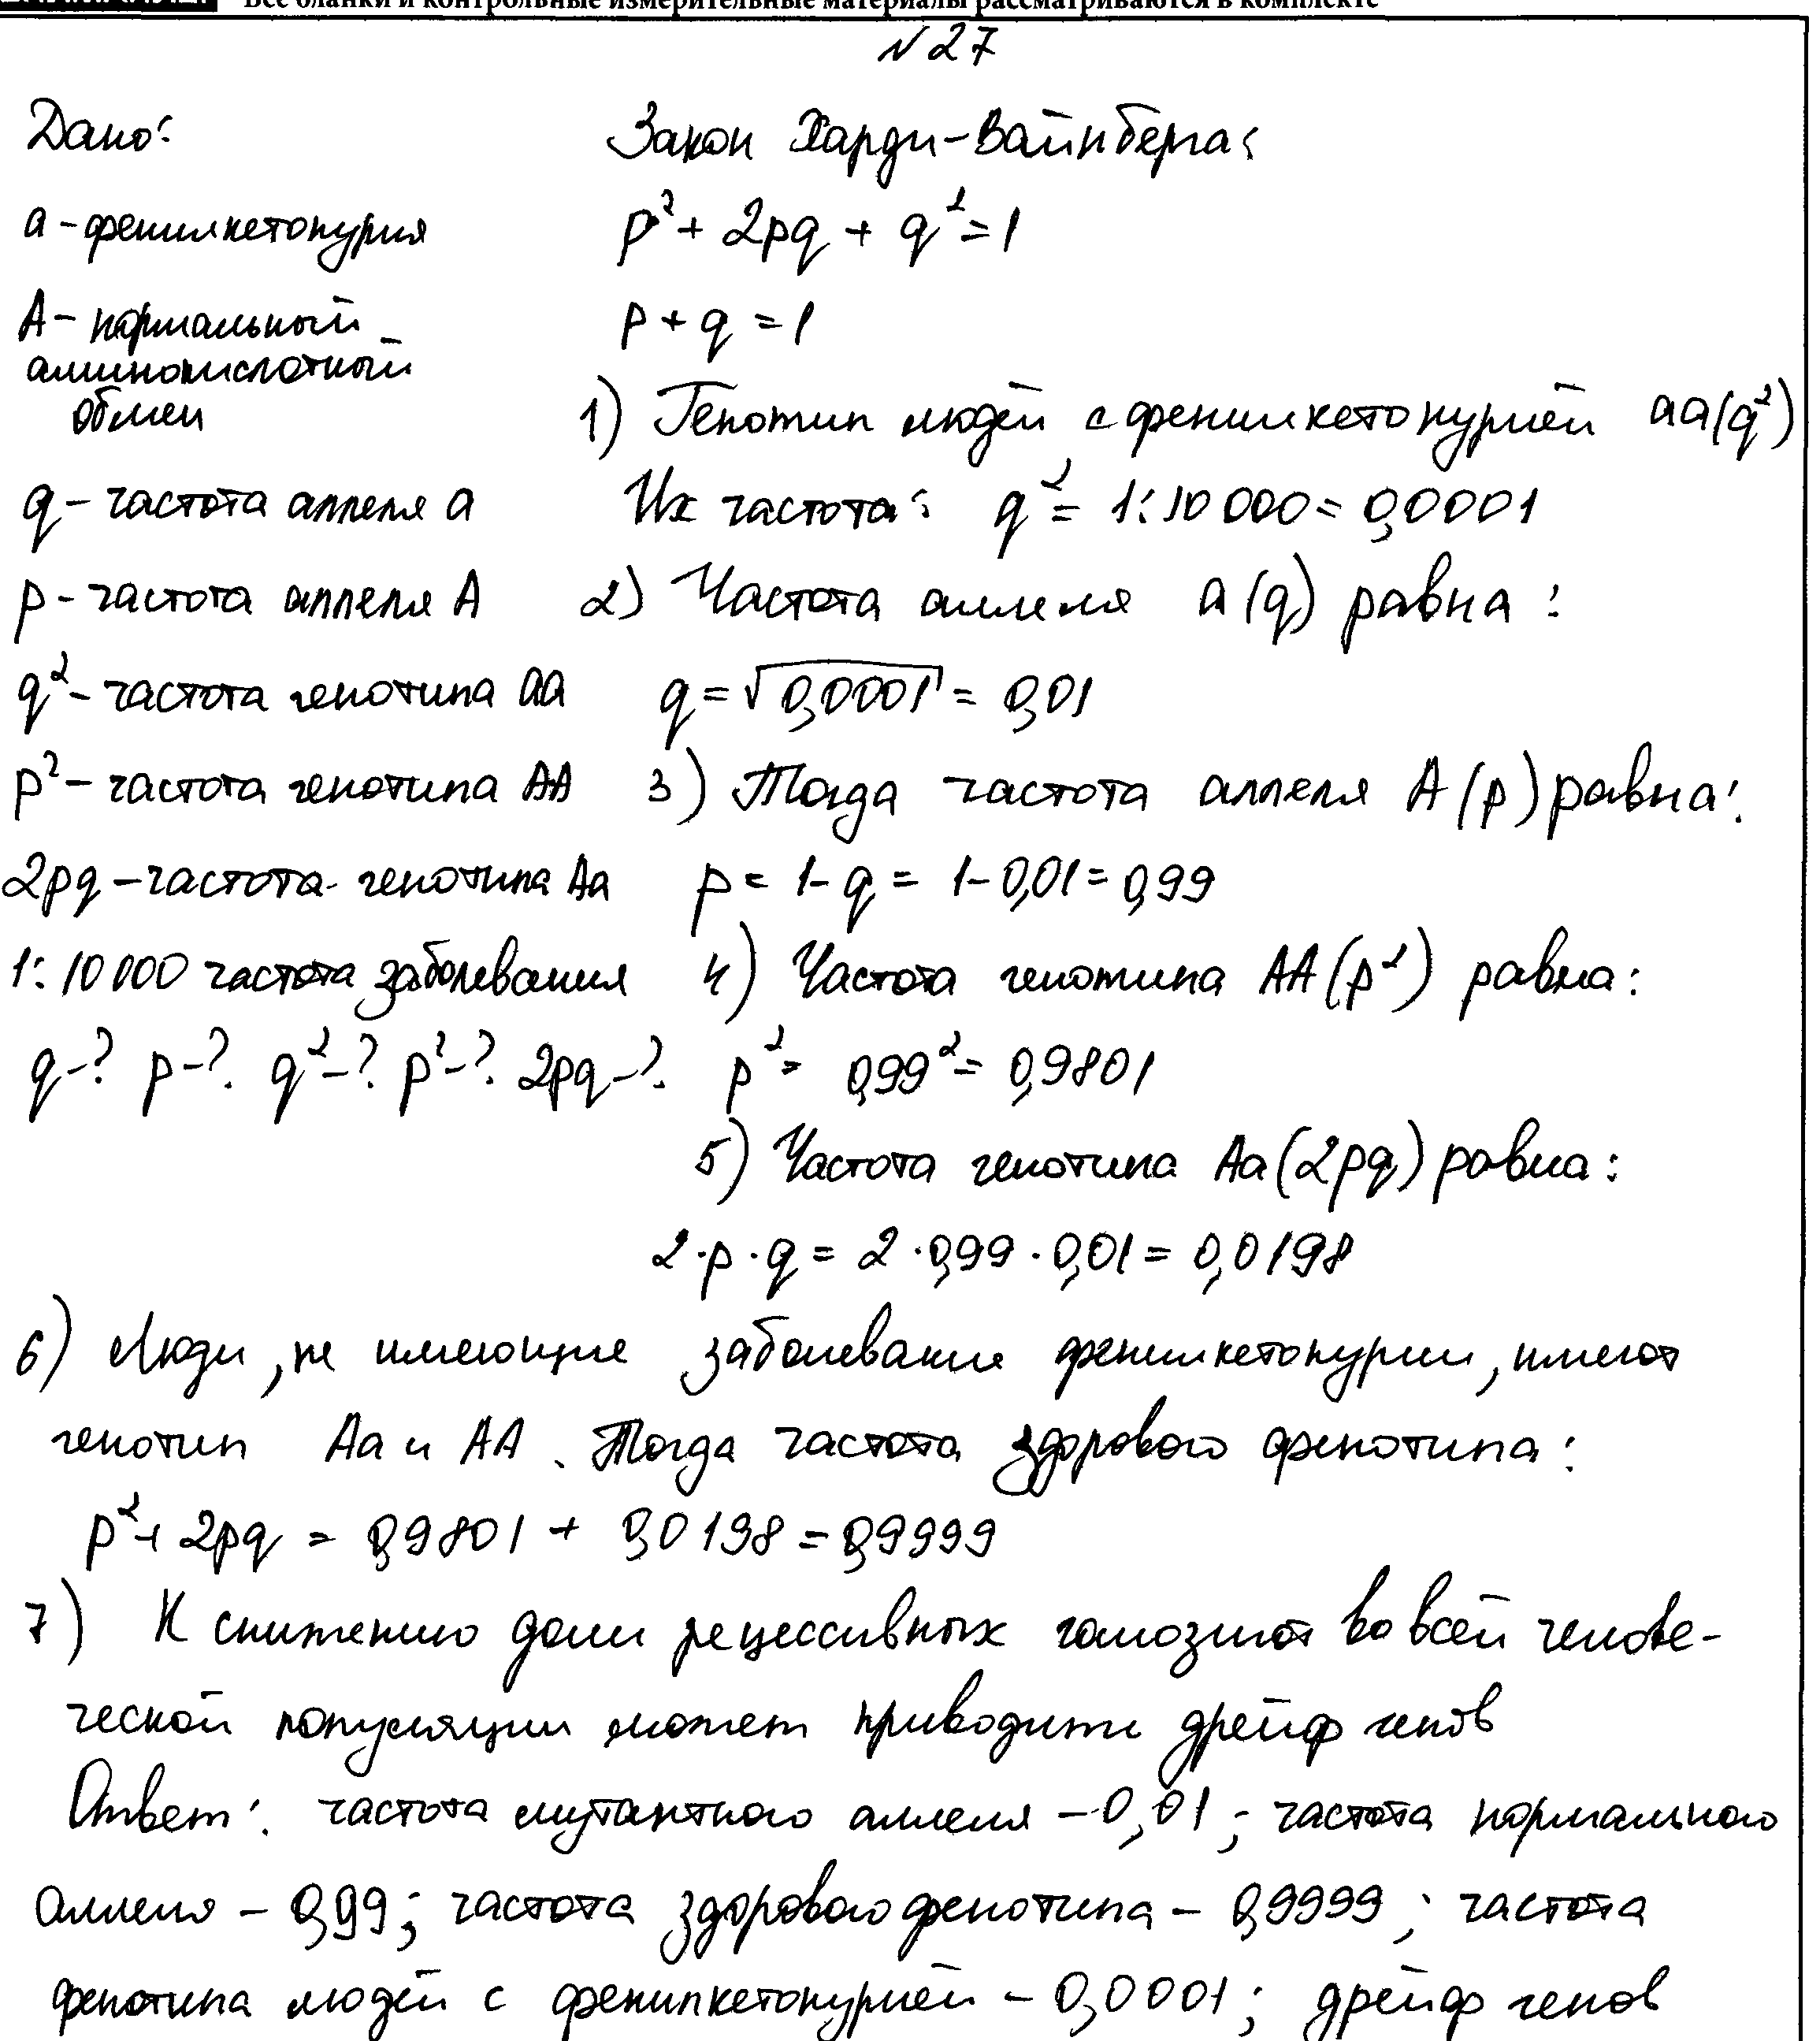 Все бланки и контрольные измерительные материалы рассматриваются в комплекте
№27
Дано:
а - фенилкетонурия
А - нормальный
аминокислотный
обмен
q - частота аллеля а
p - частота аллеля А
q² - частота генотипа аа
p² - частота генотипа АА
2pq - частота генотипа Аа
1:10 000 частота заболевания
q-? p-? q²-? p²-? 2pq-?
Закон Харди-Вайнберга:
p² + 2pq + q² = 1
p + q = 1
1) Генотип людей с фенилкетонурией аа(q²)
Их частота: q² = 1:10 000 = 0,0001
2) Частота аллеля а(q) равна:
q = √0,0001 = 0,01
3) Тогда частота аллеля А(p) равна:
p = 1 - q = 1 - 0,01 = 0,99
4) Частота генотипа АА(p²) равна:
p² = 0,99² = 0,9801
5) Частота генотипа Аа(2pq) равна:
2·p·q = 2·0,99·0,01 = 0,0198
6) Люди, не имеющие заболевание фенилкетонурии, имеют
генотип Аа и АА. Тогда частота здорового фенотипа:
p² + 2pq = 0,9801 + 0,0198 = 0,9999
7) К снижению доли рецессивных гомозигот во всей челове-
ческой популяции может приводить дрейф генов
Ответ: частота мутантного аллеля - 0,01; частота нормального
аллеля - 0,99; частота здорового фенотипа - 0,9999; частота
фенотипа людей с фенилкетонурией - 0,0001; дрейф генов